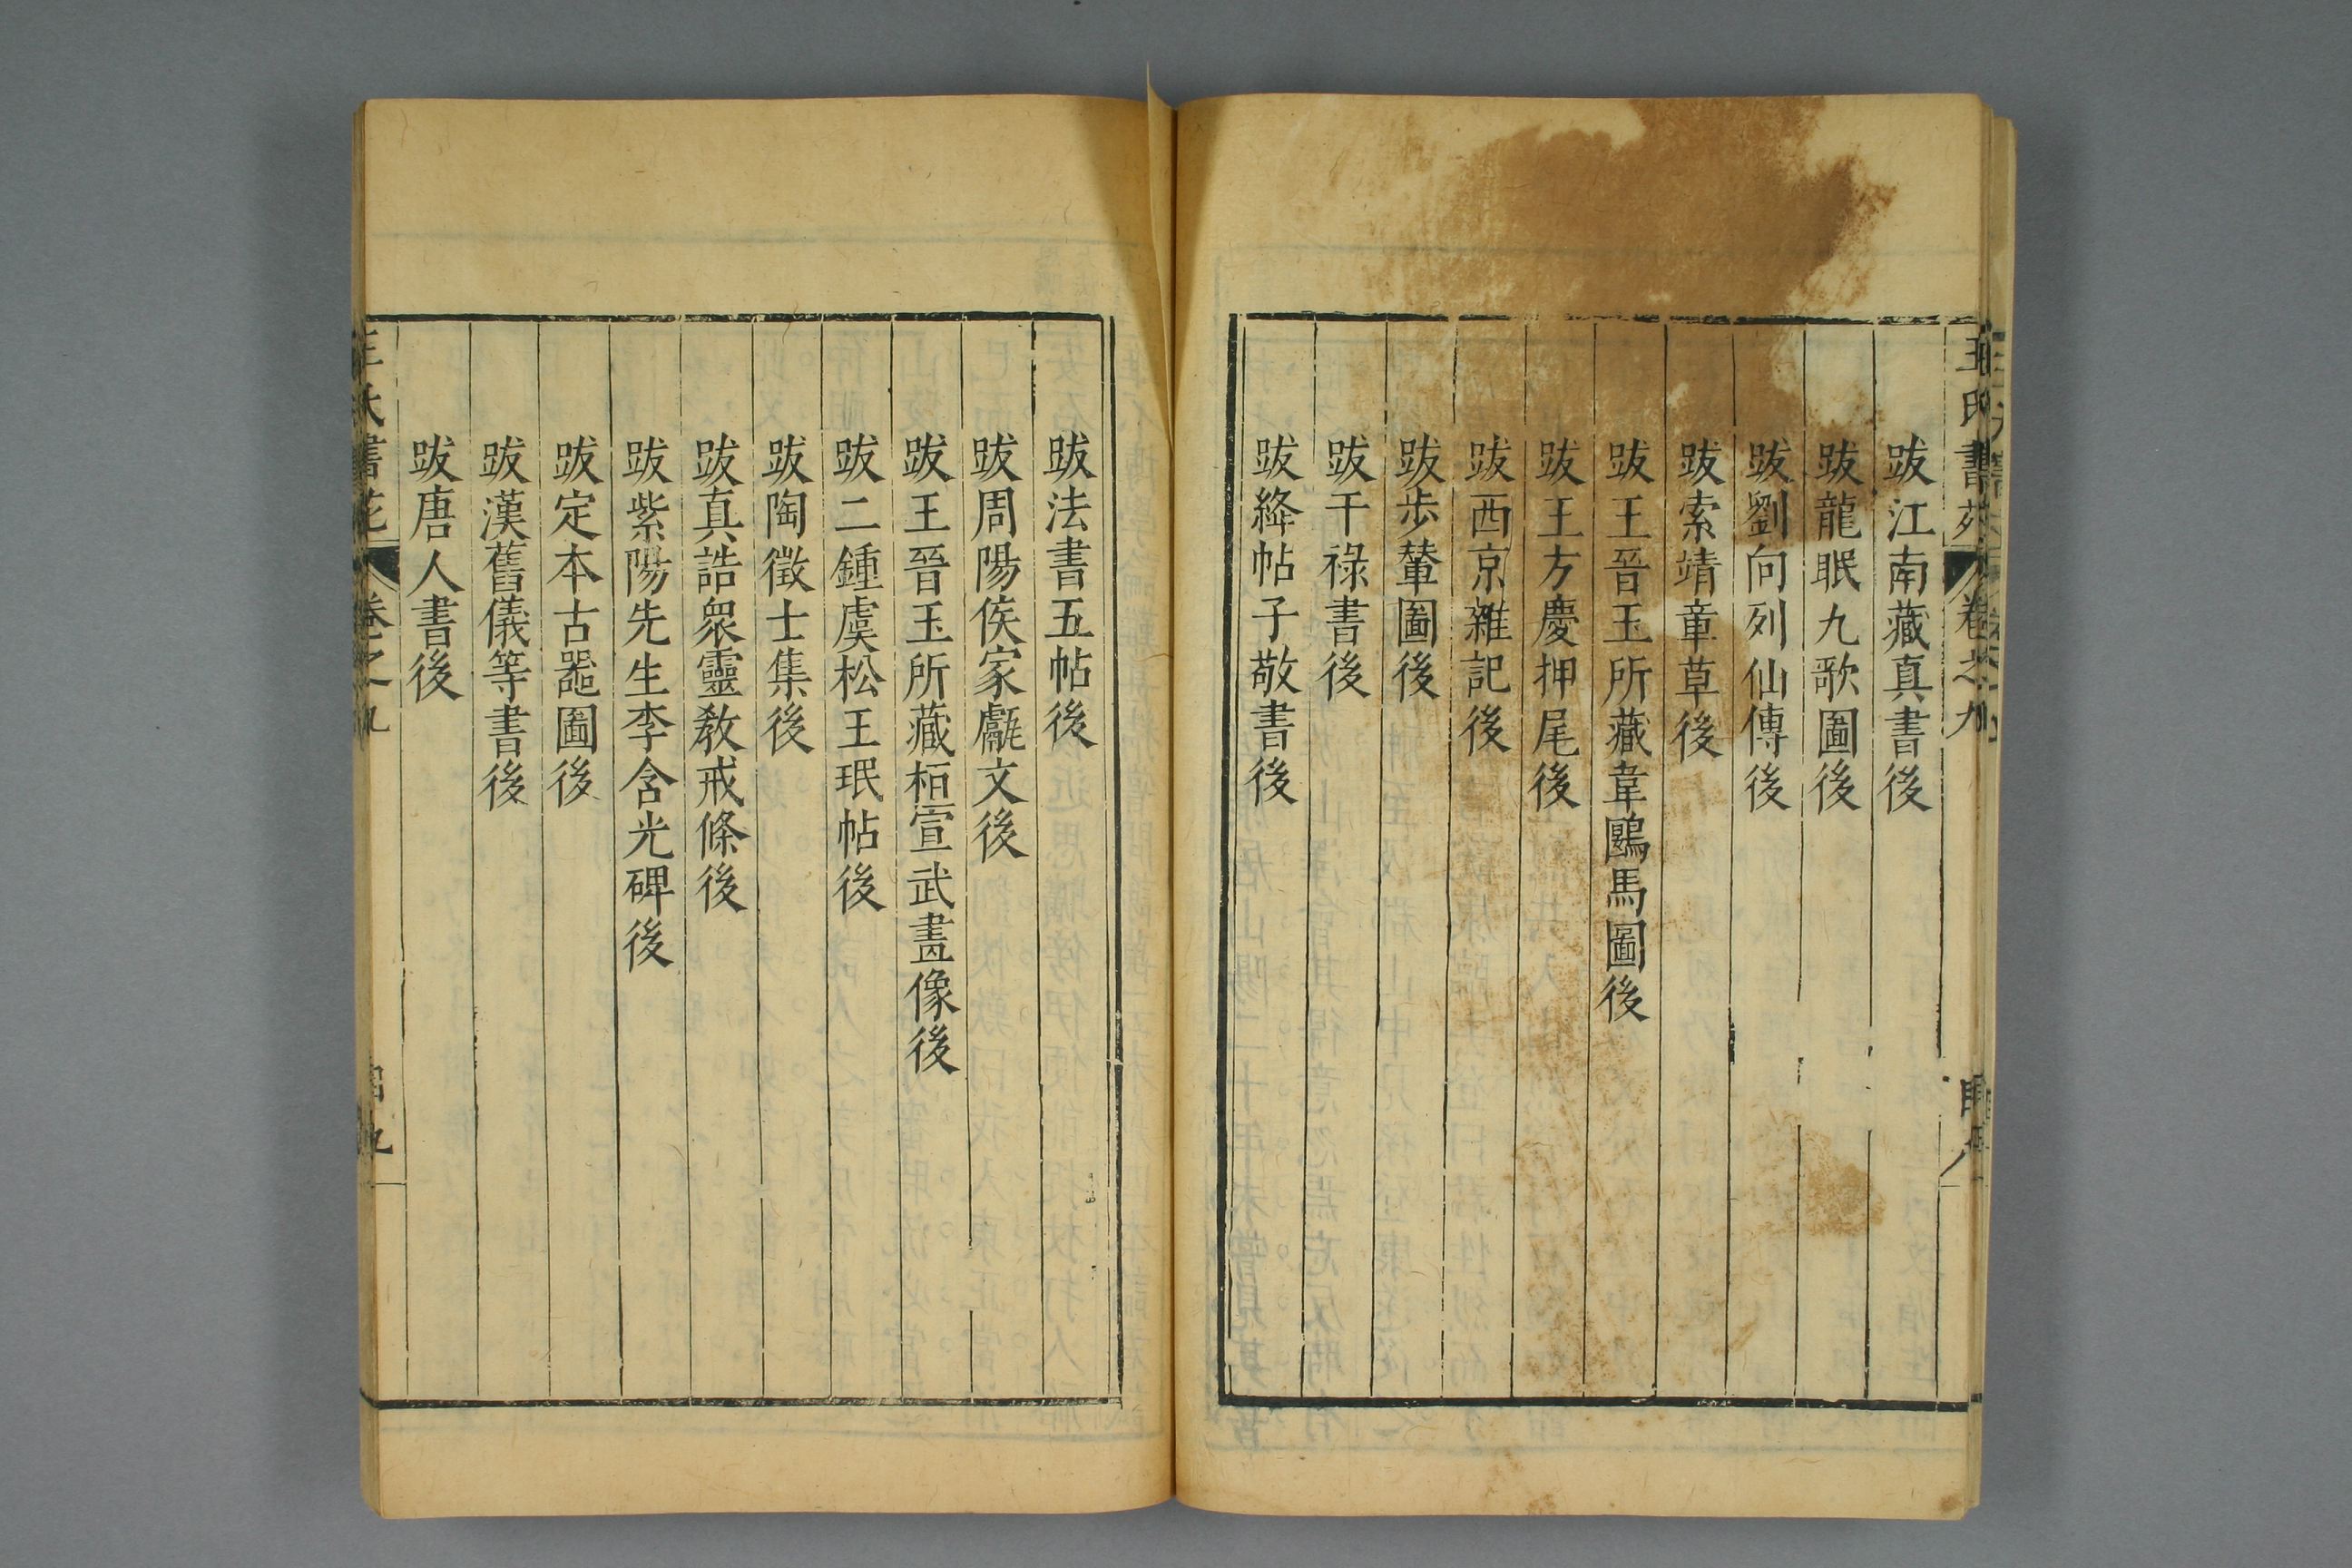 王氏書苑 卷之九
跋江南藏真書後
跋龍眠九歌圖後
跋劉向列仙傳後
跋索靖章草後
跋王晉玉所藏韋鷗馬圖後
跋王方慶押尾後
跋西京雜記後
跋步輦圖後
跋干祿書後
跋絳帖子敬書後
跋法書五帖後
跋周陽侯家甗文後
跋王晉玉所藏桓宣武畫像後
跋二鍾虞松王珉帖後
跋陶徵士集後
跋真誥眾靈教戒條後
跋紫陽先生李含光碑後
跋定本古器圖後
跋漢舊儀等書後
跋唐人書後